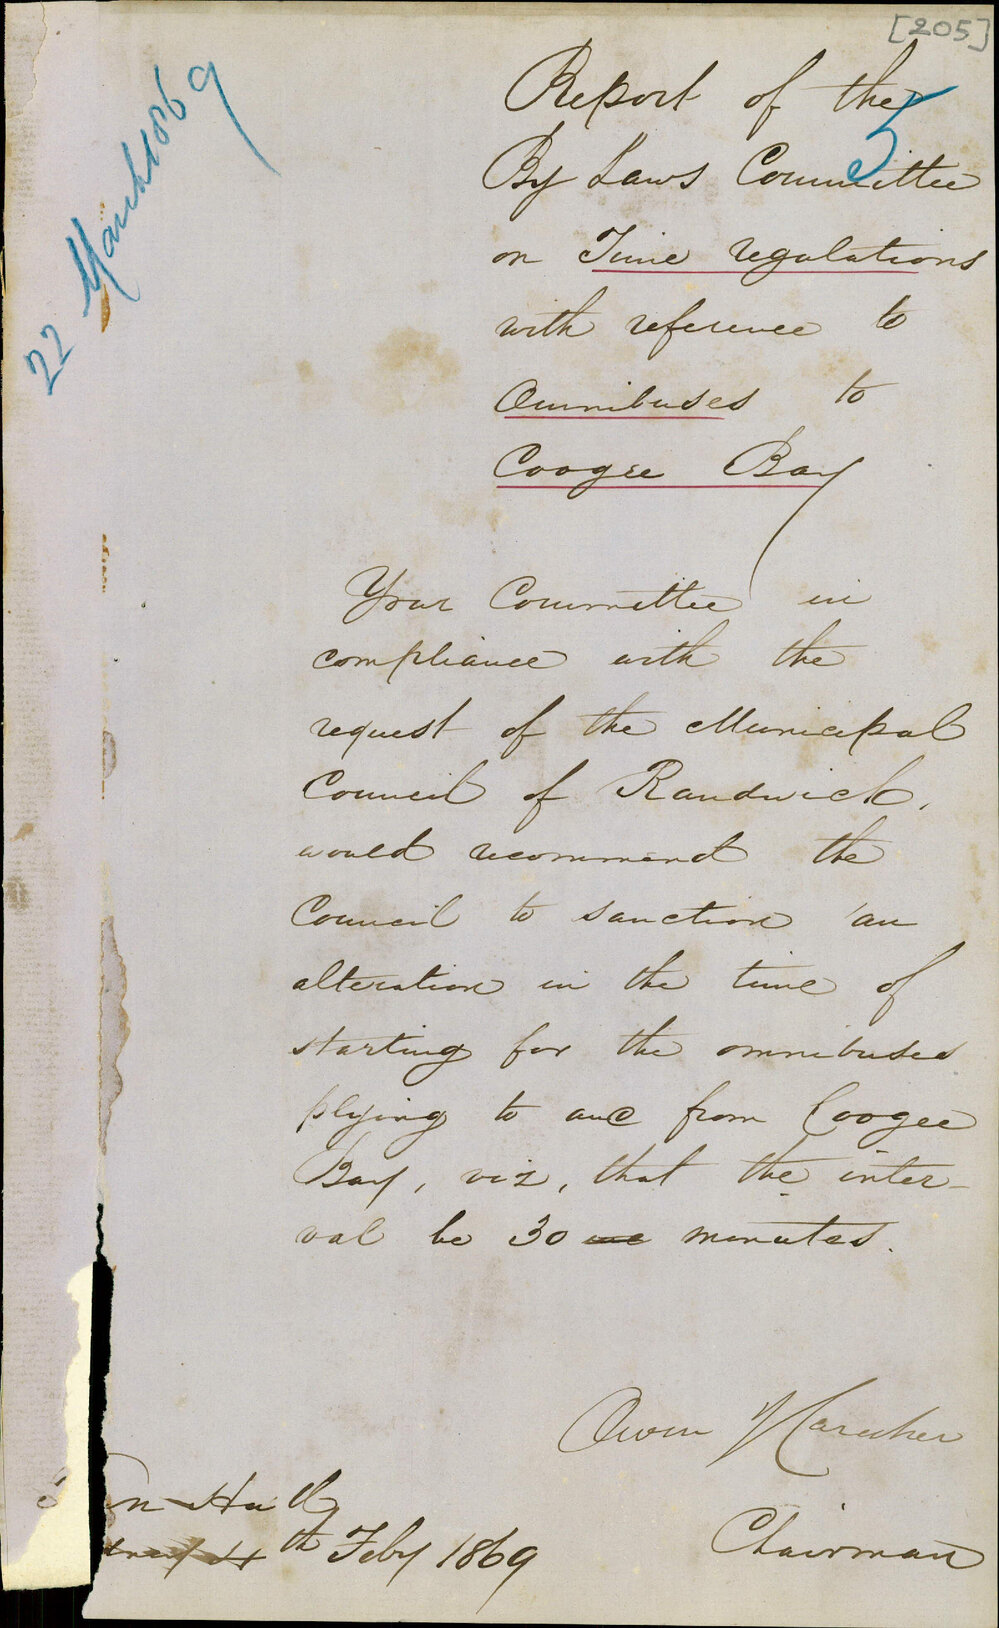 [205]
22 March 1869
5
Report of the
By Laws Committee
on Time regulations
with reference to
Omnibuses to
Coogee Bay
Your Committee in
compliance with the
request of the Municipal
Council of Randwick,
would recommend the
Council to sanction an
alteration in the time of
starting for the omnibuses
plying to and from Coogee
Bay, viz, that the inter-
val be 30 minutes.
Owen
Chairman
n Hall
th Feby 1869